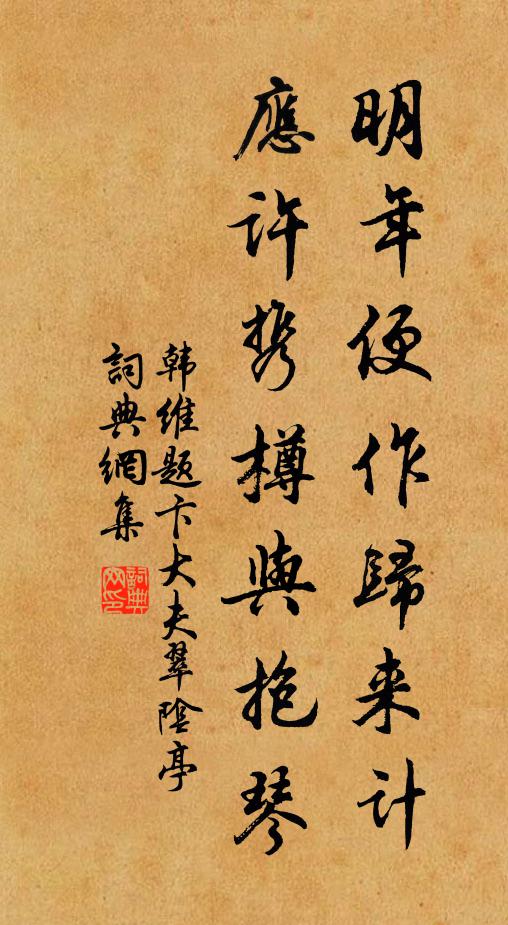 明年便作歸来計
應許携樽與抱琴
韩維题卞大夫翠陰亭
詞典網集
詞典网印